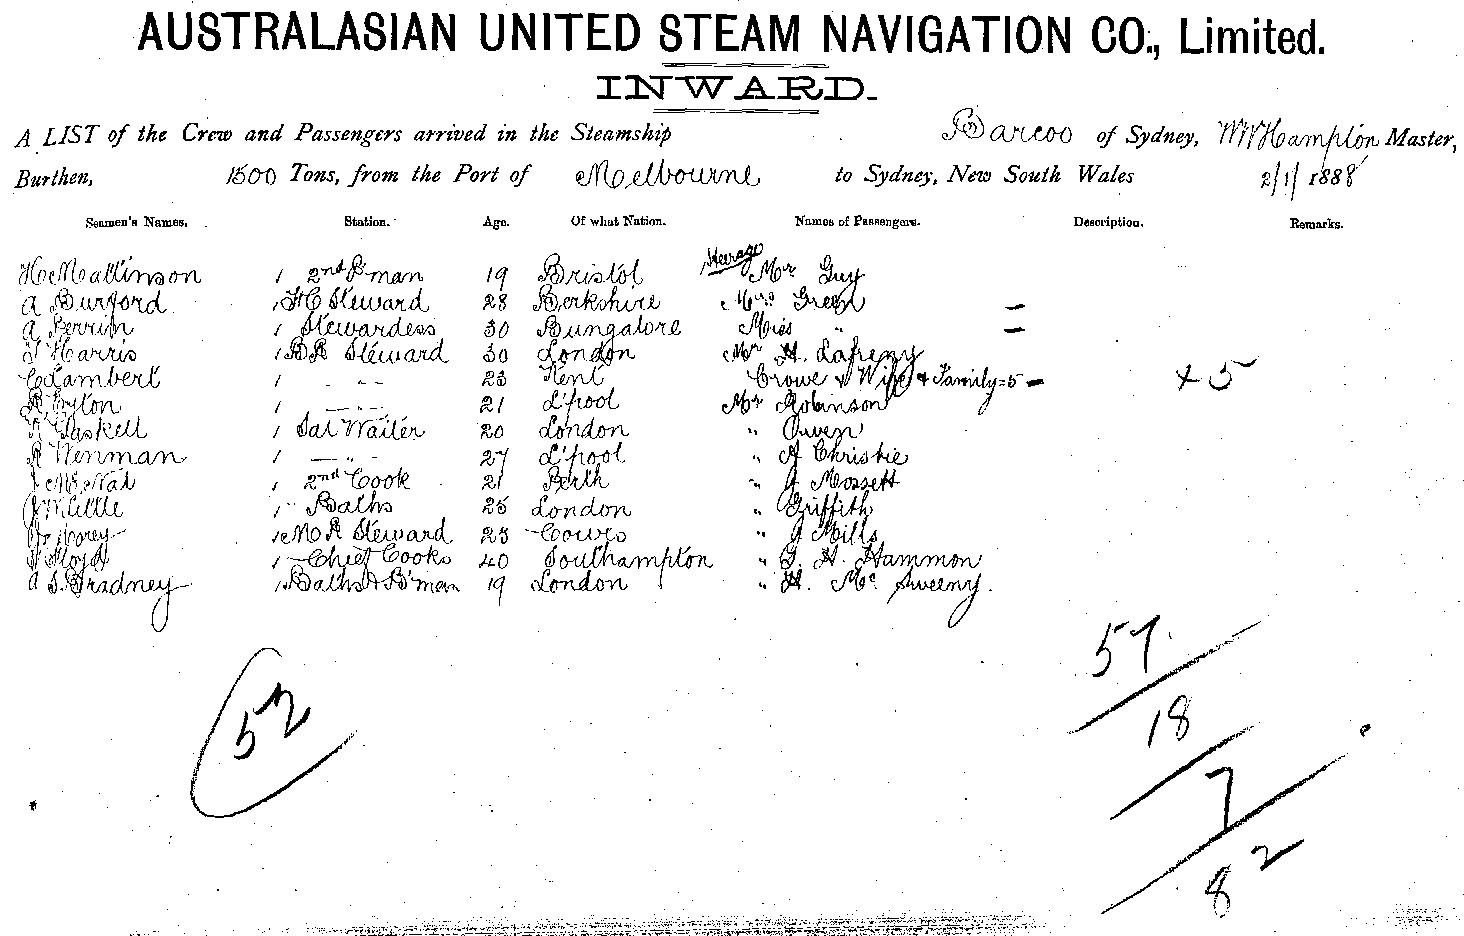 AUSTRALASIAN UNITED STEAM NAVIGATION CO., Limited.
INWARD.
A LIST of the Crew and Passengers arrived in the Steamship Barcoo of Sydney, WW Hampton Master,
Burthen, 1500 Tons, from the Port of Melbourne to Sydney, New South Wales 2/1/1888
Seamen's Names. Station. Age. Of what Nation. Names of Passengers. Description. Remarks.
Steerage
H Mallinson 1 2nd P'man 19 Bristol Mr Guy
A Burford 1 F C Steward 28 Berkshire Mrs Green -
A Perrim 1 Stewardess 30 Bungalore Miss " -
Harris 1 B R Steward 30 London Mr H. Lafreny
C Lambert 1 - " - 23 Kent Crowe & Wife & Family=5 - + 5
Eyton 1 - " - 21 L'pool Mr Robinson
Gaskell 1 Sal Waiter 20 London " Owen
R Wenman 1 - " - 27 L'pool " A Christie
J McNab 1 2nd Cook 21 Perth " J Mossett
J W Little 1 Baths 25 London " Griffith
Morey 1 M R Steward 23 Cowes " J Mills
Floyd 1 Chief Cooks 40 Southampton " G. H. Hammon
A S. Bradney 1 Baths & B'man 19 London " H. Mc Sweeny.
57
52
18
7
82